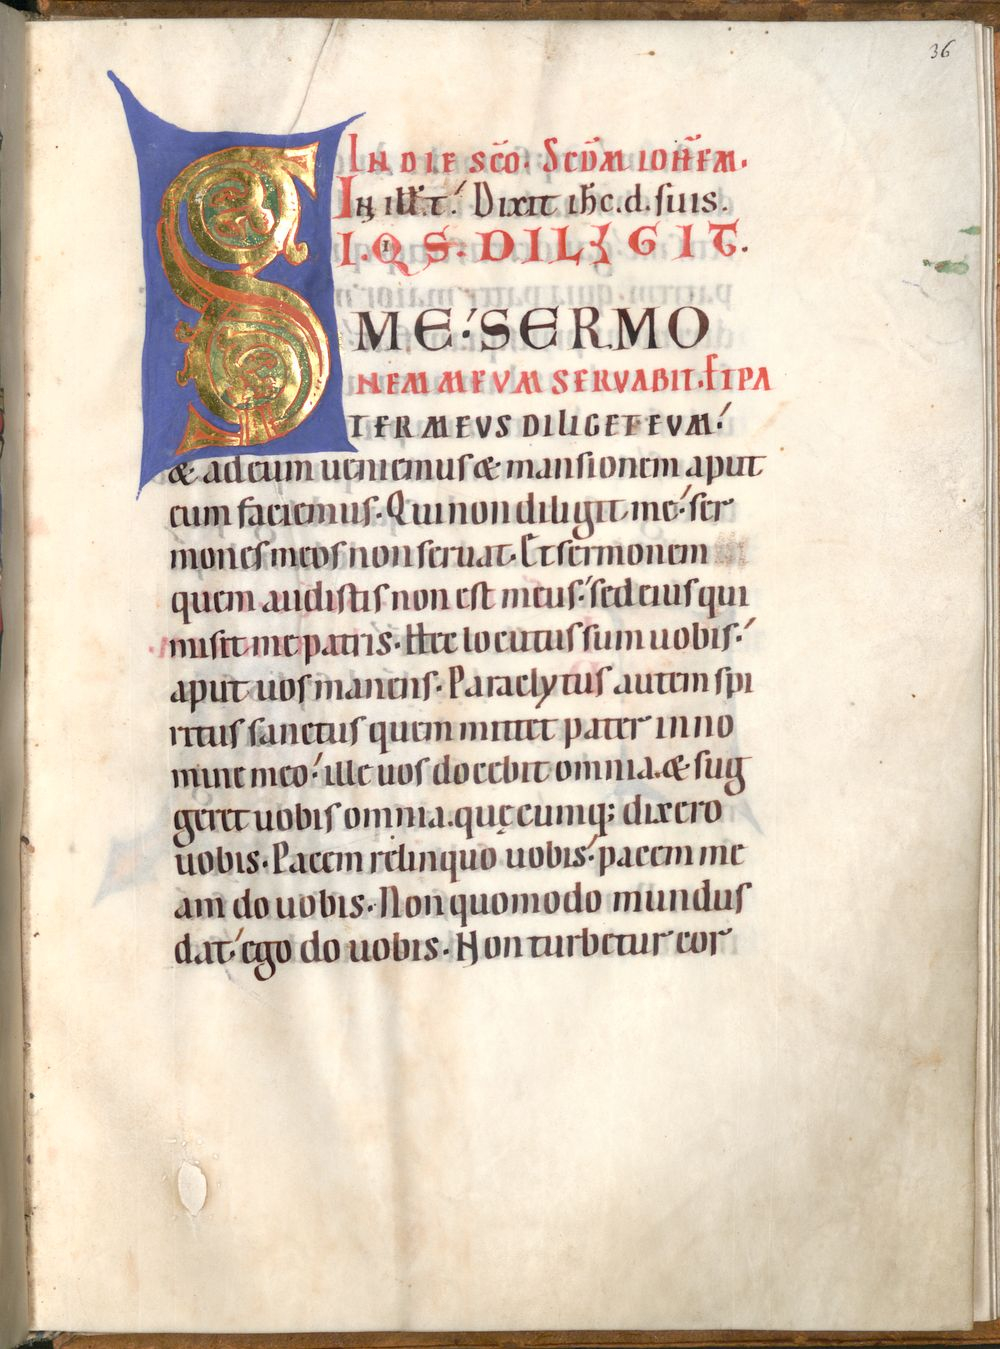 36
IN DIE SC̄O. SCD̄M IOH̄EM.
In ill'.t'. Dixit ih̄c.d.suis.
SI.QIS. DILIGIT
ME. SERMO
NEM MEVM SERVABIT. ET PA
TER MEVS DILIGET EVM.
& ad eum ueniemus & mansionem aput
eum faciemus. Qui non diligit me. ser
mones meos non seruat. Et sermonem
quem audistis non est meus. sed eius qui
misit me patris. Hec locutus sum uobis.
aput uos manens. Paraclytus autem spi
ritus sanctus quem mittet pater in no
mine meo. ille uos docebit omnia. & sug
geret uobis omnia. quęcumq; dixero
uobis. Pacem relinquo uobis. pacem me
am do uobis. Non quomodo mundus
dat. ego do uobis. Non turbetur cor